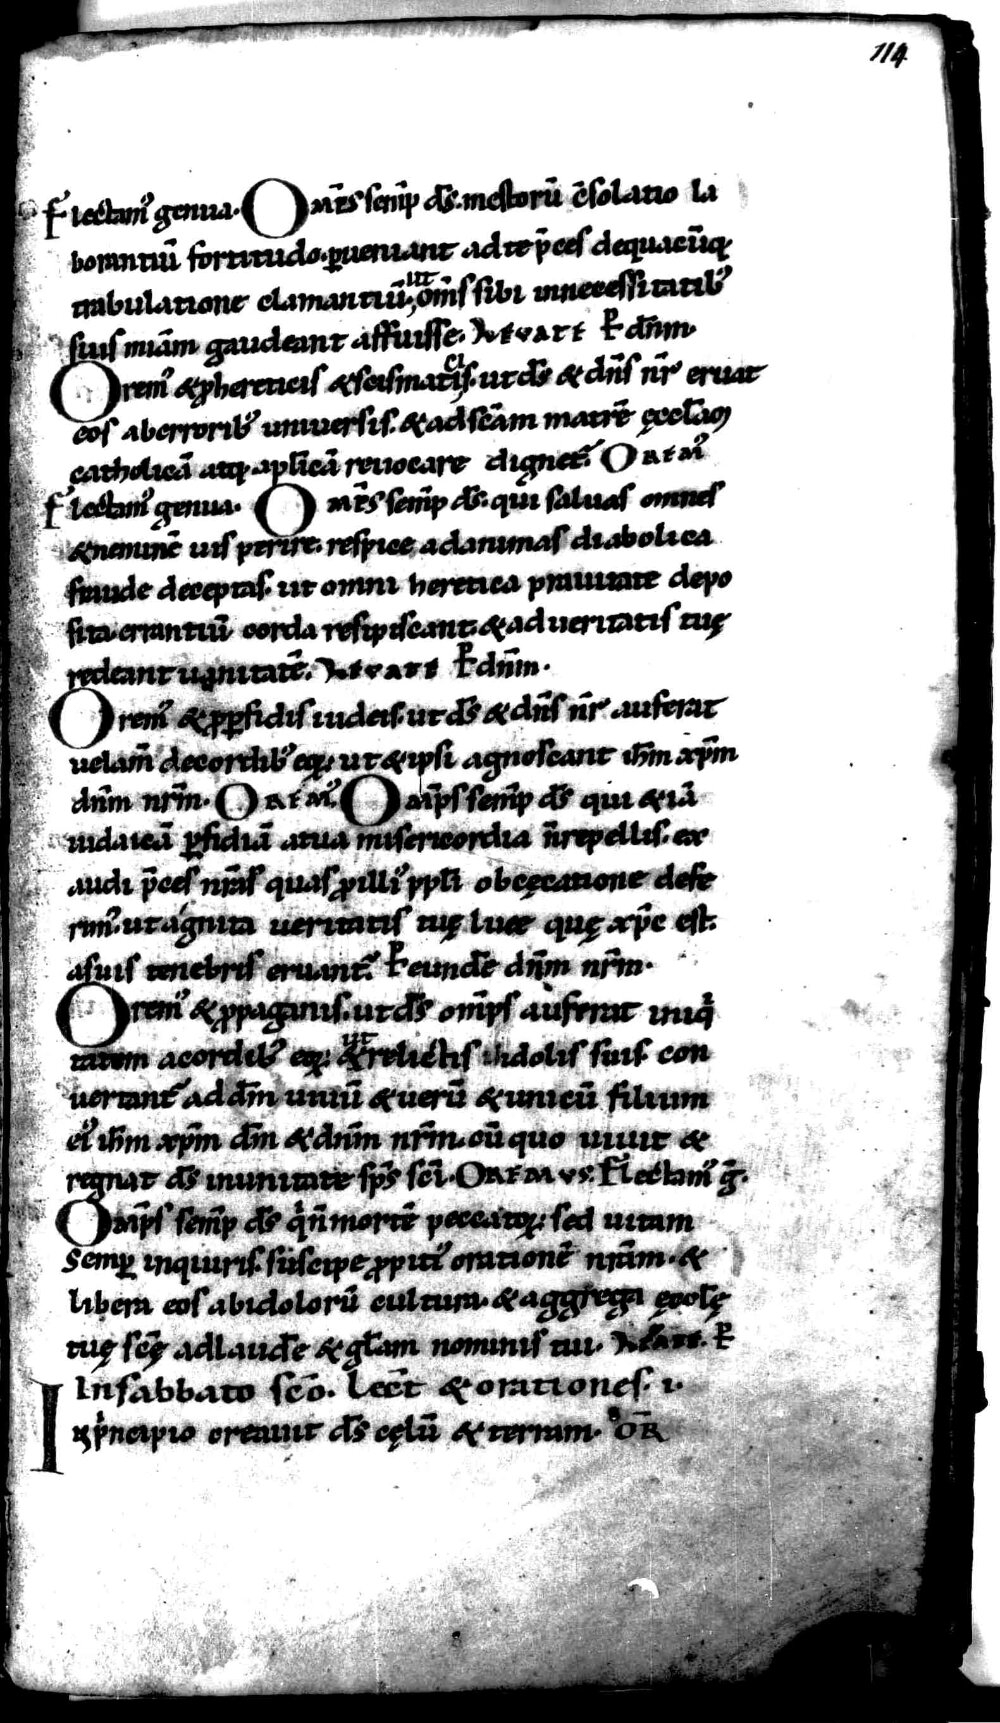 114
Flectam᷒ genua. Omp̄s semp̄ d̄s. mestorū c̄solatio la
borantiū fortitudo. ꝑueniant ad te p̄ces de quacūq;
tribulatione clamantiū. ut om̄s sibi in necessitatib᷒
suis miām gaudeant affuisse. Levate P̄ dn̄m.
Orem᷒ & ꝓ hereticis & scismaticis. ut d̄s & dn̄s nr̄ eruat
eos ab erroribꝰ universis. & ad sc̄am matrē ęccl̄am
catholicā atq; apl̄icā revocare dignet᷒. Oremꝰ
Flectam᷒ genua. Omp̄s semp̄ d̄s. qui salvas omnes
& neminē vis perire. respice ad animas diabolica
fraude deceptas. ut omni heretica pravitate depo
sita errantiū corda resipiscant. & ad veritatis tuę
redeant unitatē. Levate P̄ dn̄m.
Orem᷒ & ꝓ ꝑfidis iudeis. ut d̄s & dn̄s nr̄ auferat
velam̄ de cordibꝰ eoꝝ ut & ipsi agnoscant ih̄m xp̄m
dn̄m nr̄m. Oremꝰ. Omp̄s semp̄ d̄s qui & iā
iudaicā ꝑfidiā a tua misericordia n̄ repellis. ex
audi p̄ces nr̄as quas ꝓ illiꝰ ppl̄i obcęcatione defe
rimꝰ. ut agnita veritatis tuę luce quę xp̄c est.
a suis tenebris eruant᷒. P̄ eundē dn̄m nr̄m.
Orem᷒ & ꝓ paganis. ut d̄s omp̄s auferat iniq̇
tatem a cordibꝰ eoꝝ. ut & relictis idolis suis con
vertant᷒ ad dm̄ vivū & verū & unicū filium
eiꝰ ih̄m xp̄m dm̄ & dn̄m nr̄m. cū quo vivit &
regnat d̄s in unitate sp̄s sc̄i. Oremus. Flectam᷒ ḡ.
Omp̄s semp̄ d̄s q̇ n̄ mortē peccatoꝝ. sed vitam
semꝑ inquiris. suscipe ꝓpitiꝰ orationē nr̄am. &
libera eos ab idolorū cultura. & aggrega ęccl̄ę
tuę sc̄ę ad laudē & gl̄am nominis tui. Levate. P̄
In sabbato sc̄o. Lect̄ & orationes. i.
In ṗncipio creavit d̄s cęlū & terram. OR̄